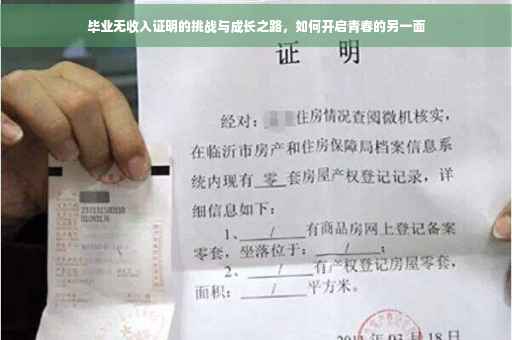 毕业无收入证明的挑战与成长之路，如何开启青春的另一面
证 明
经对：住房情况查阅微机核实，
在临沂市房产和住房保障局档案信息系
统内现有 零 套房屋产权登记记录，详
细信息如下：
1、 / 有商品房网上登记备案
零套，坐落位于： / ；
2、 / 有产权登记房屋零套，
面积： / 平方米。
月 18 日